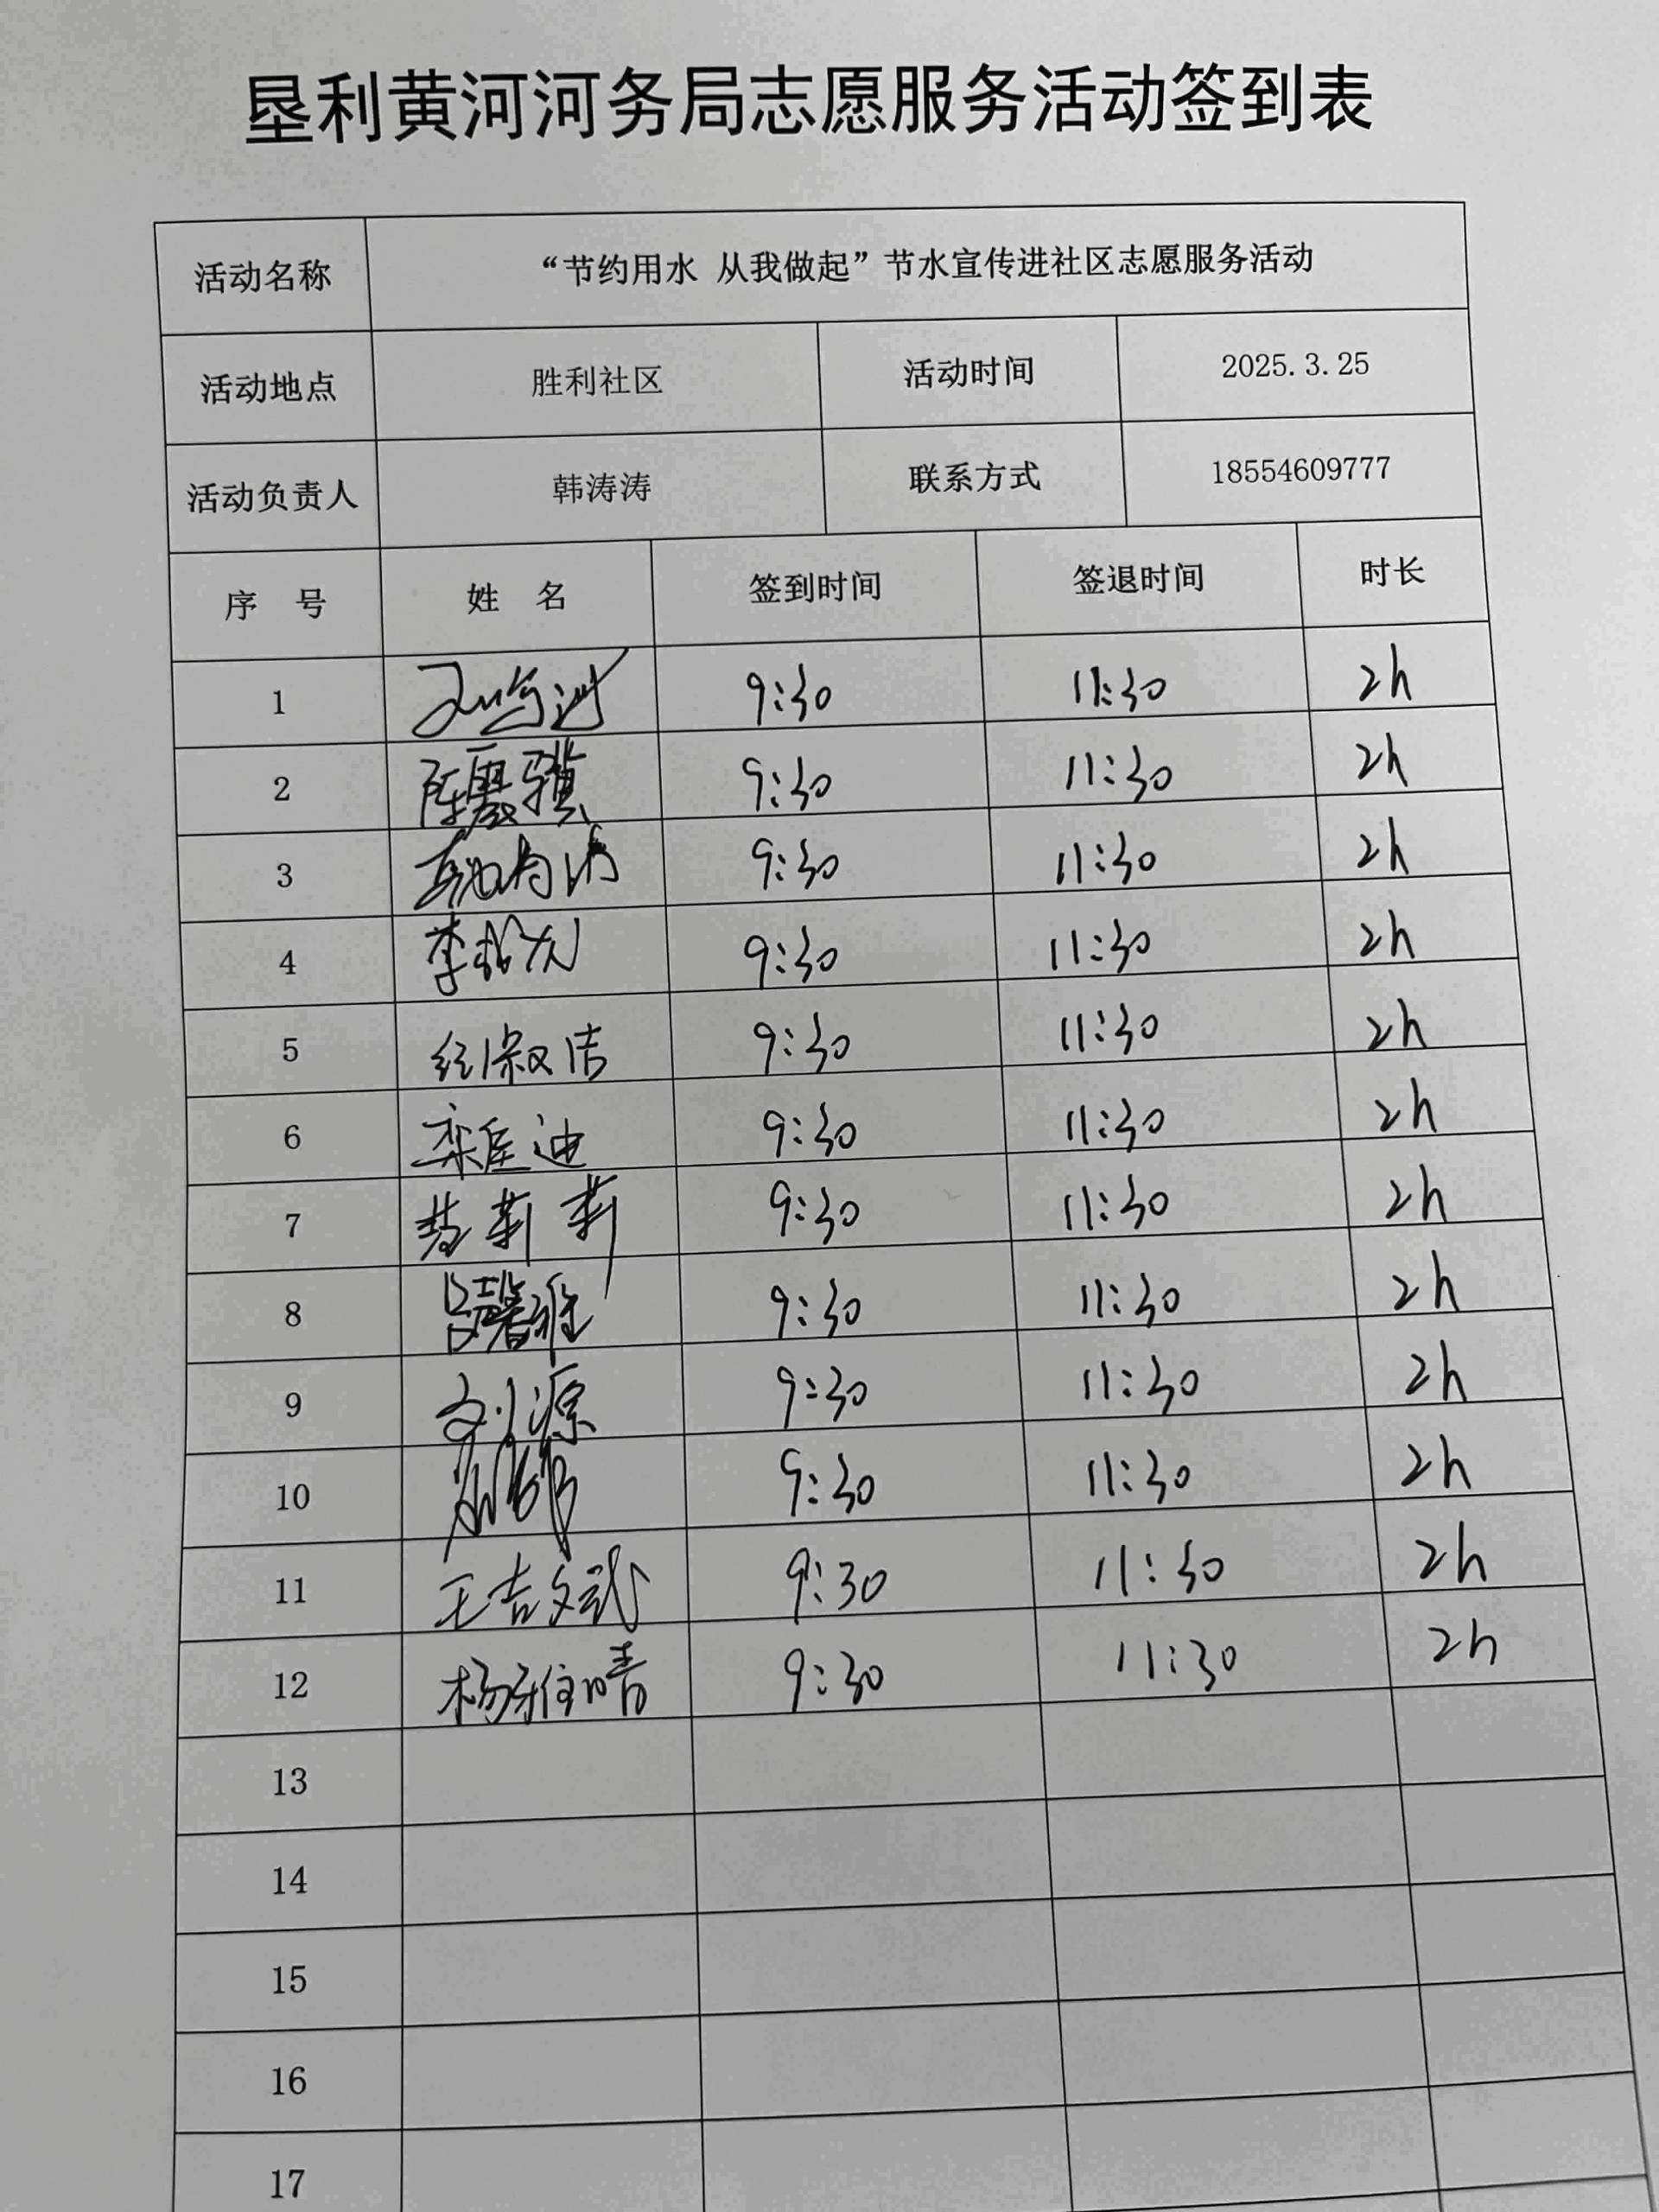 垦利黄河河务局志愿服务活动签到表
活动名称 “节约用水 从我做起”节水宣传进社区志愿服务活动
活动地点 胜利社区 活动时间 2025.3.25
活动负责人 韩涛涛 联系方式 18554609777
序 号 姓 名 签到时间 签退时间 时长
1 9:30 11:30 2h
2 陈震骥 9:30 11:30 2h
3 9:30 11:30 2h
4 李 9:30 11:30 2h
5 淑洁 9:30 11:30 2h
6 栾 迪 9:30 11:30 2h
7 莉莉 9:30 11:30 2h
8 吕馨雅 9:30 11:30 2h
9 刘源 9:30 11:30 2h
10 9:30 11:30 2h
11 王吉文武 9:30 11:30 2h
12 杨雅晴 9:30 11:30 2h
13
14
15
16
17